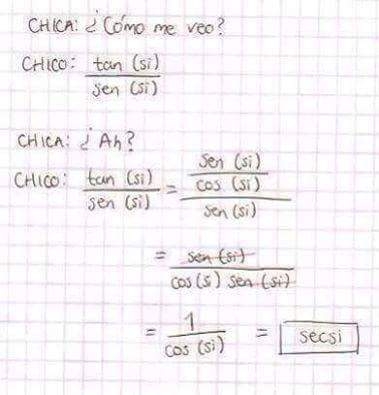 CHICA: ¿Cómo me veo?
CHICO: tan (si) / sen (si)
CHICA: ¿Ah?
CHICO: tan (si) / sen (si) = sen (si) / cos (si) / sen (si)
= sen (si) / cos (si) sen (si)
= 1 / cos (si) = secsi